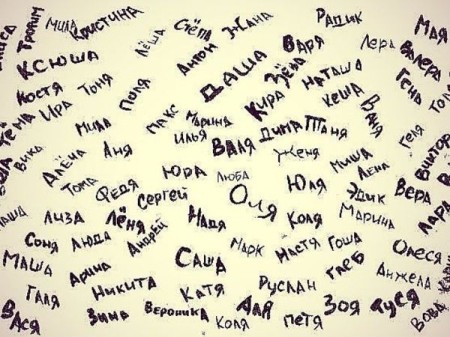 Трофим Мила Кристина Стёпа Жанна Радик Мая
Ксюша Лёша Антон Варя Лера Валера
Костя Ира Тоня Поля Даша Зёма Наташа Гена
Макс Марина Кира Кеша Ваня
Мила Илья Валя Дима Таня Геля
Вика Алёна Аня Женя Миша Лена Виктор
Тома Федя Сергей Юра Люба Юля Эдик Вера
Лиза Лёня Надя Оля Коля Марина Лара
Соня Люда Андрей Марк Настя Гоша Олеся
Маша Арина Саша Глеб Анжела
Галя Никита Катя Руслан
Вася Зина Вероника Коля Аля Петя Зоя Туся Вова